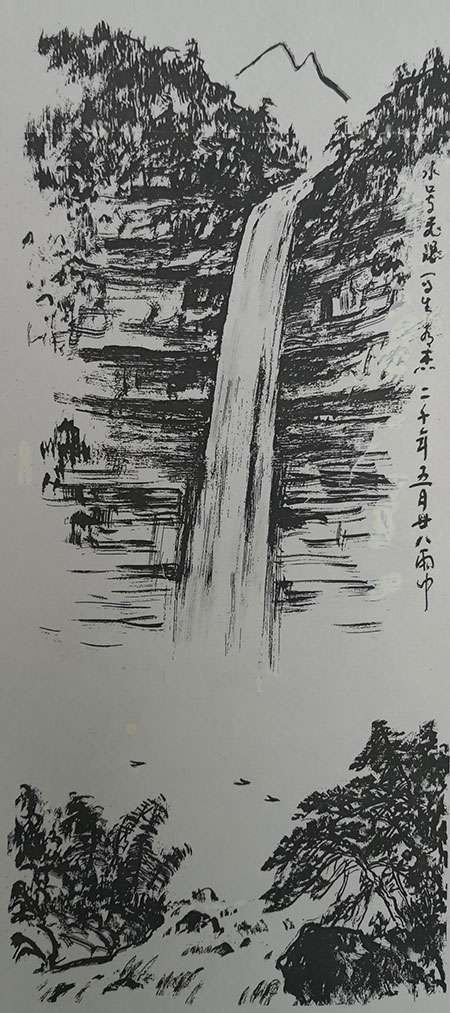 水口寺飞瀑写生 二千年五月廿八雨中